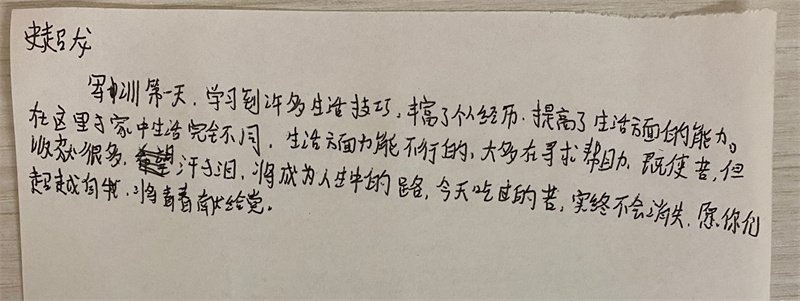 史超龙
军训第一天，学习到许多生活技巧，丰富了个人经历，提高了生活方面的能力。
在这里于家中生活完全不同，生活方面力能不行的，大多在寻求帮助，既使苦，但
收获很多，汗于泪，将成为人生中的路，今天吃过的苦，实终不会消失，愿你们
超越自我，将青春献给党。